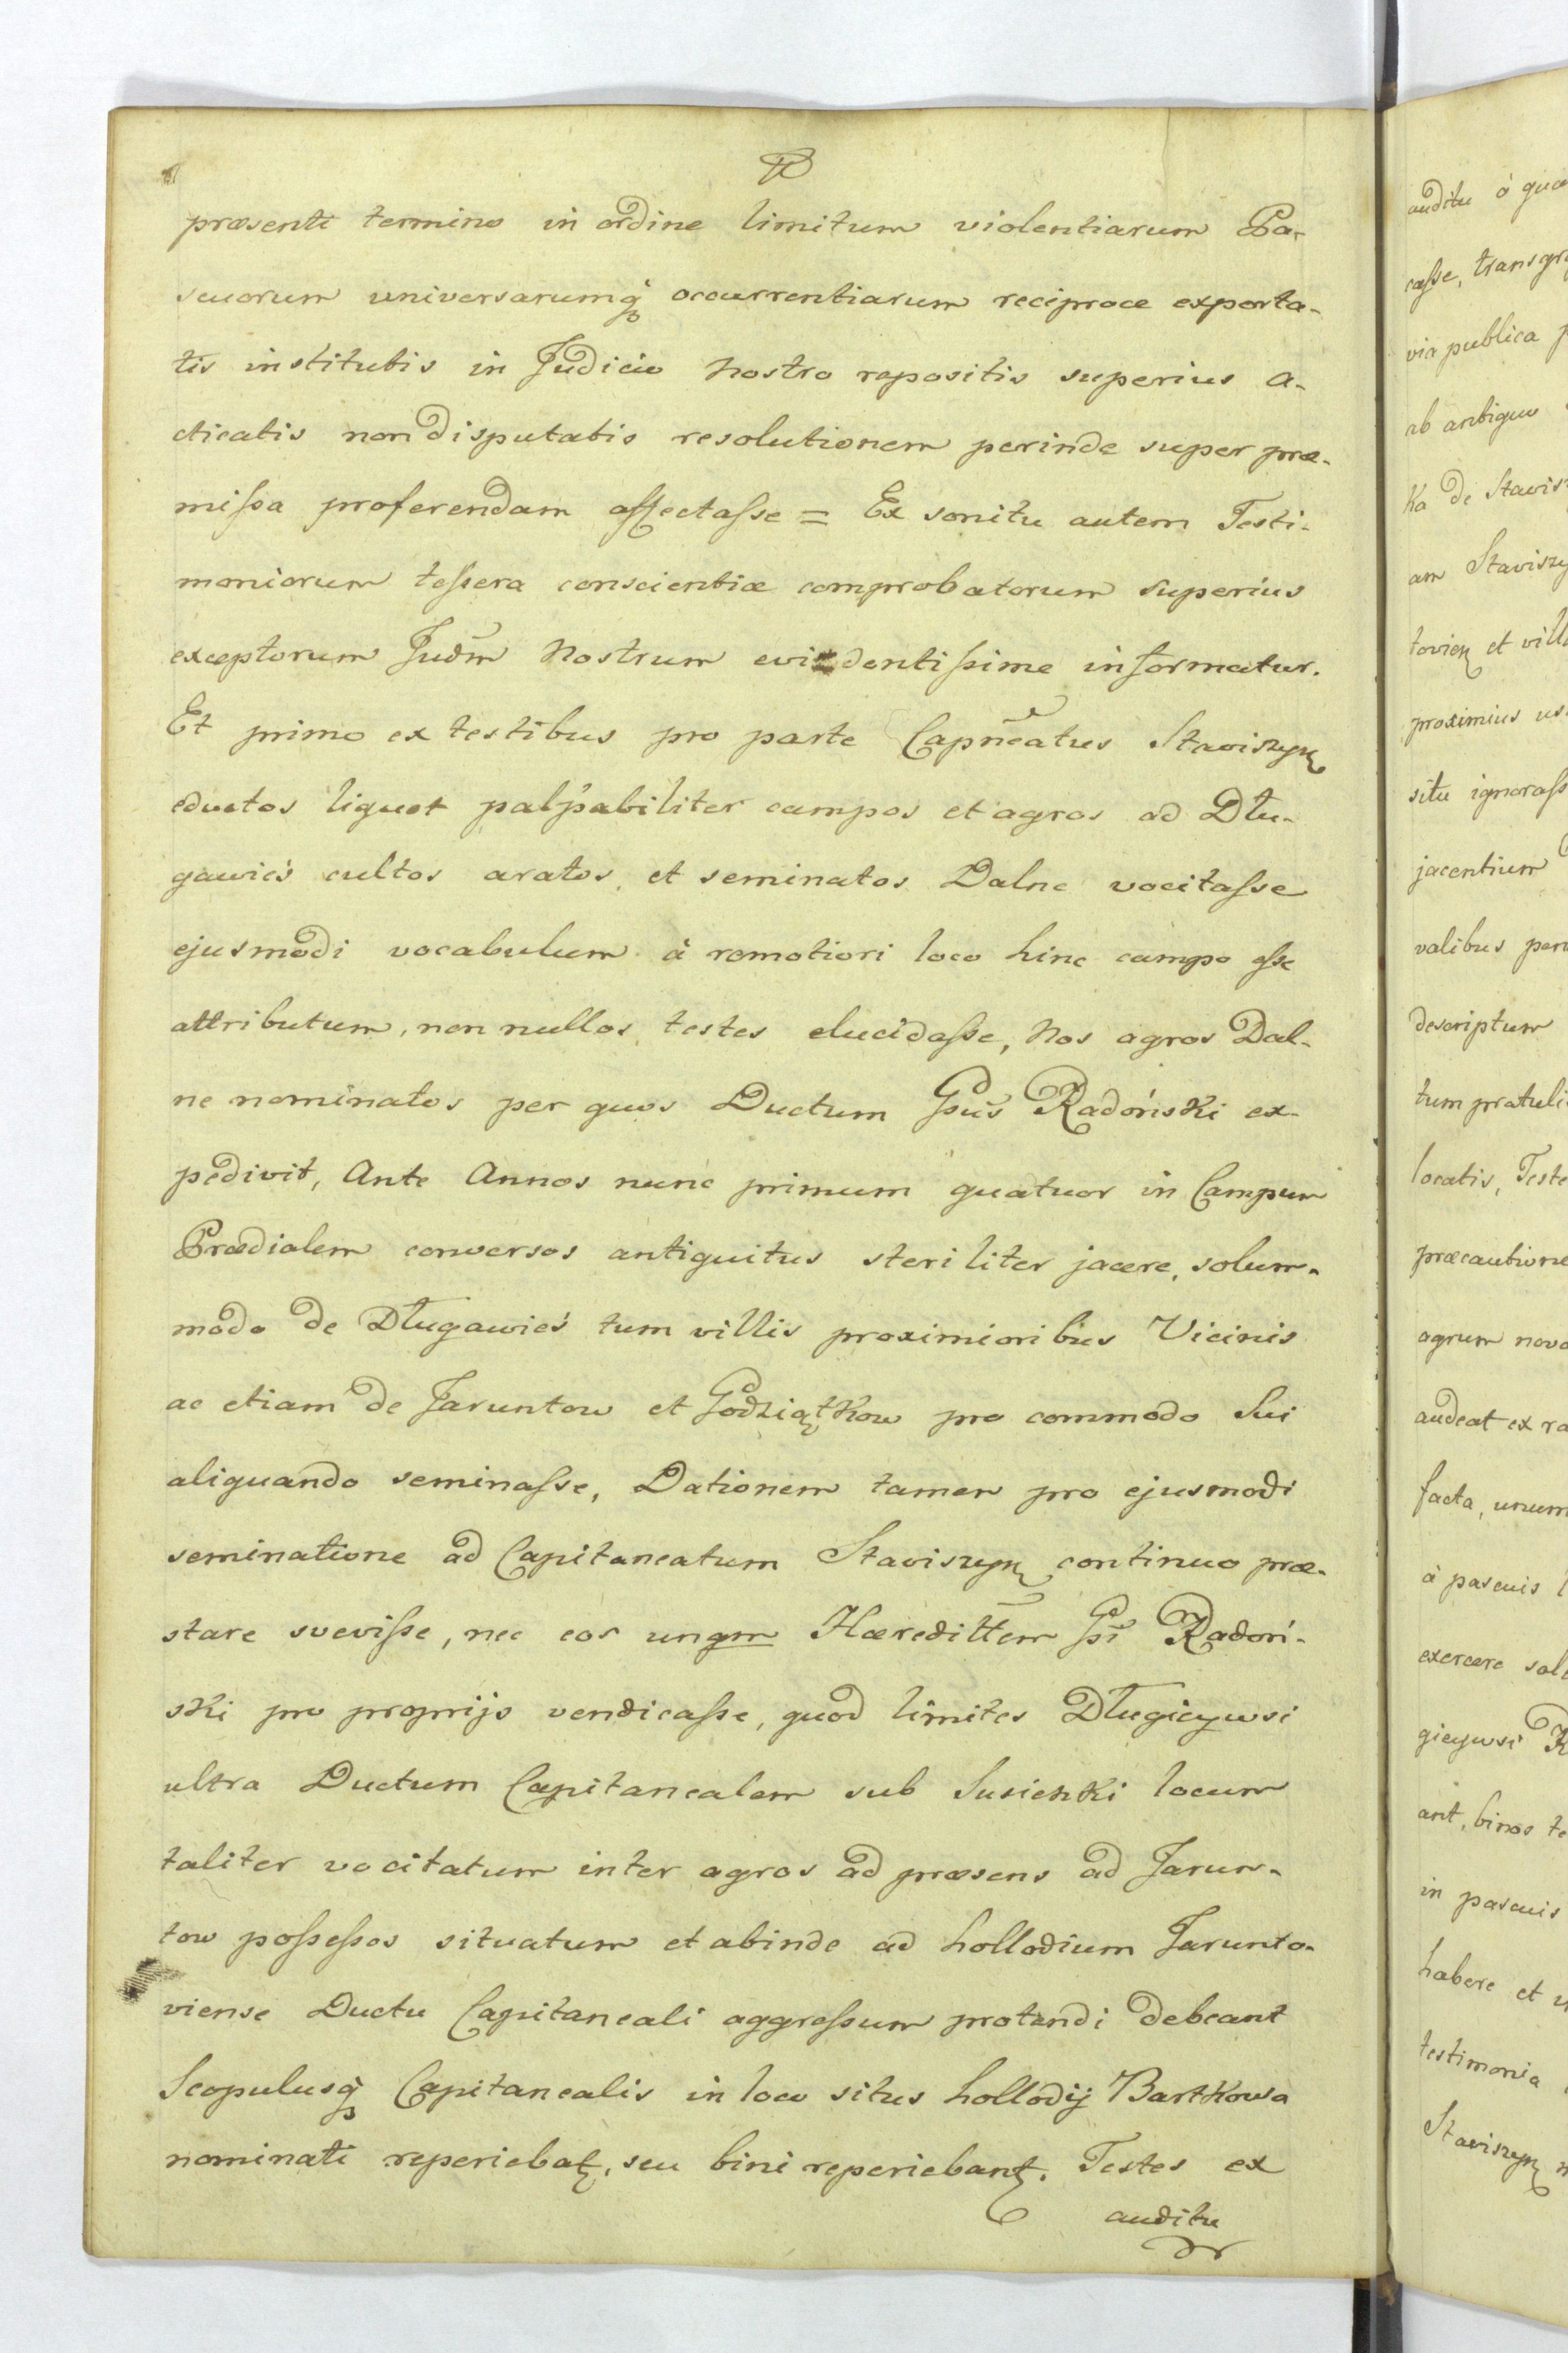 præsenti termino in ordine limitum violentiarum Pa-
scuorum universarumq̃ occurrentiarum reciproce experta-
tis institutis in Judicio Nostro repositis superius a-
cticatis non disputatis resolutionem perinde super præ-
mißa proferendam affectaße = Ex sonitu autem Testi-
moniorum teßera conscientiæ comprobatorum superius
exceptorum Judm̃ Nostrum evidentißime informatur.
Et primo ex testibus pro parte Capnẽatus Staviszyn̨
eductos liquet palpabiliter campos et agros ad Dłu-
gawieś cultos aratos, et seminatos Dalne vocitaße
ejusmodi vocabulum à remotiori loco hinc campo eße
attributum, non nullos testes elucidaße, Nos agros Dal-
ne nominatos per quos Ductum Gsus̃ Radoński ex-
pedivit, Ante Annos nunc primum quatuor in Campum
Prædialem conversos antiquitus steriliter jacere, solum-
modo de Długawieś tum villis proximioribus Vicinis
ac etiam de Jaruntow et Godziątkow pro commodo Sui
aliquando seminaße, Dationem tamen pro ejusmodi
seminatione ad Capitaneatum Staviszyn̨ continuo præ-
stare sveviße, nec eos unqm Hæredittem̃ Gsi̇̃ Radoń-
ski pro proprijs vendicaße, quod limites Długieywsi
ultra Ductum Capitanealem sub Susienki locum
taliter vocitatum inter agros ad præsens ad Jarun-
tow poßeßos situatum et abinde ad hollodium Jarunto-
viense Ductu Capitaneali aggreßum protendi debeant
Scopulusq̃ Capitanealis in loco situs hollodij Bartkowa
nominati reperiebat̨, seu bini reperiebant̨. Testes ex
auditu
auditu à qua
caße, transgr
via publica p
ab antiquo
ka de Stavisz
am Staviszy
tovien̨ et vill
proximius us
situ ignoraß
jacentium
valibus per
descriptum
tum pratuli
locatis, Teste
præcautione
agrum novo
audeat ex ra
facta, unum
à pascuis
exercere sol
gieywsi R
ant, binos te
in pascuis
habere et
testimonia
Staviszyn̨